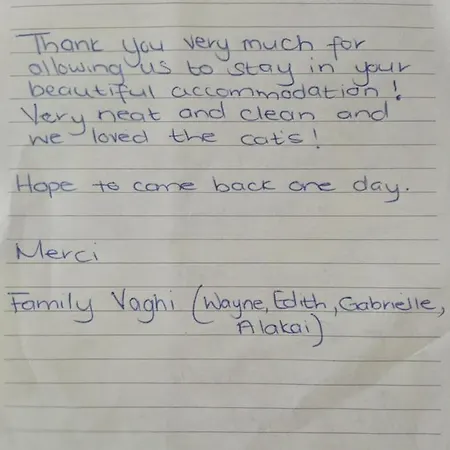 Thank you very much for
allowing us to stay in your
beautiful accommodation!
Very neat and clean and
we loved the cats!
Hope to come back one day.
Merci
Family Vaghi (Wayne, Edith, Gabrielle,
Alakai)